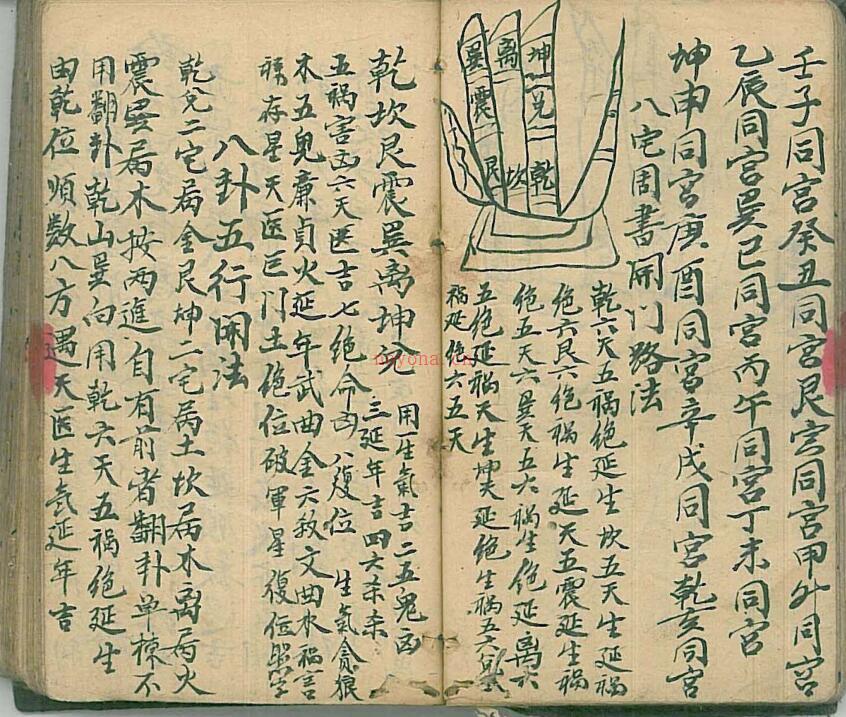 壬子同宫癸丑同宫艮寅同宫甲卯同宫
乙辰同宫巽巳同宫丙午同宫丁未同宫
坤申同宫庚酉同宫辛戌同宫乾亥同宫
八宅周书開门路法
坤 兑 乾
离 坎
巽 震 艮
乾六天五祸绝延生坎五天生延祸
绝六艮六绝祸生延天五震延生祸
绝五天六巽天五六祸生绝延离六
五绝延祸天生坤天延绝生祸五六兑生
祸延绝六五天
乾坎艮震巽离坤兑 用一生氣吉二五鬼凶
三延年吉四六杀
五祸害凶六天医吉七绝命凶八復位 生氣貪狼
木五鬼廉貞火延年武曲金六杀文曲水祸害
禄存星天医巨门土绝位破軍星復位
八卦五行開法
乾兑二宅属金艮坤二宅属土坎属木离属火
震巽属木按两進自有前者翻卦单棟不
用翻卦乾山巽向用乾六天五祸绝延生
由乾位順数八方遇天医生氣延年吉
nuyona.cn